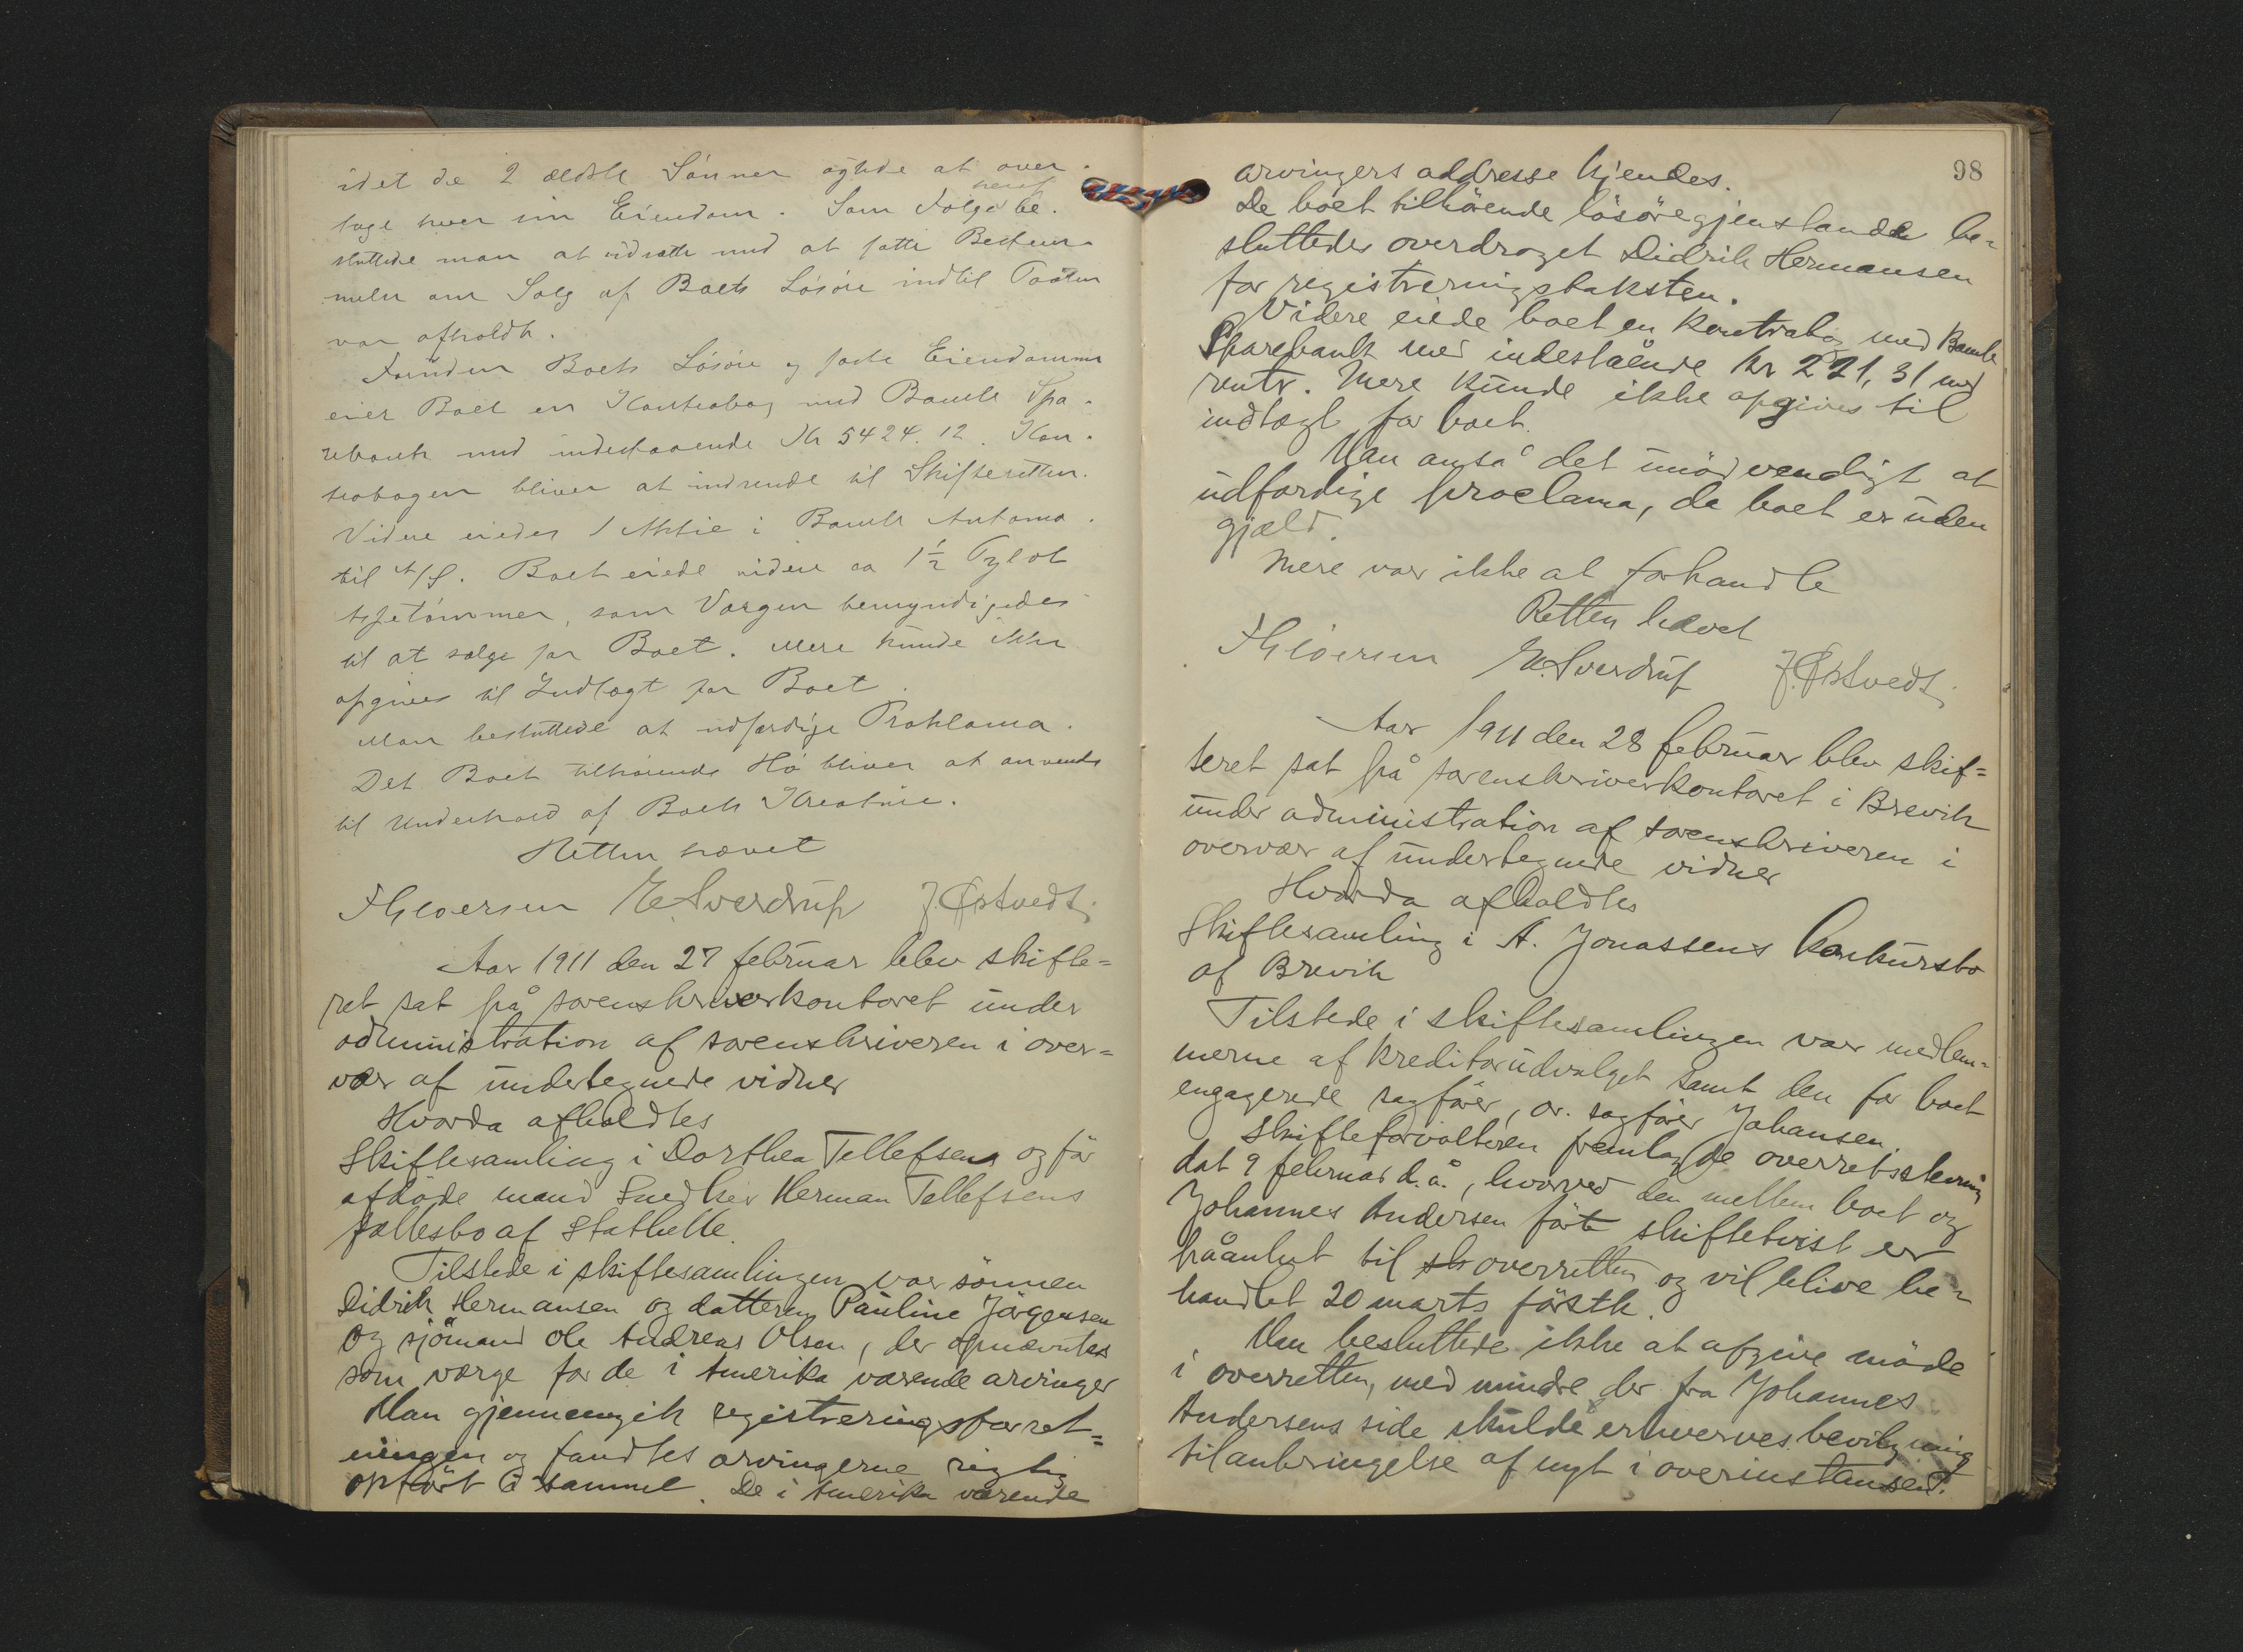 idet de 2 ældste Sønner agtede at over-
tage hver sin Eiendom. Som Følge heraf be-
sluttede man at udsætte med at fatte Bestem-
melse om Salg af Boets Løsøre indtil Taxten
var afholdt.
Foruden Boets Løsøre og faste Eiendomme
eier Boet en Kontrabog med Bamble Spa-
rebank med indestaaende Kr 5424.12. Kon-
trabogen bliver at indsende til Skifteretten.
Videre eiedes 1 Aktie i Bamble Automo-
til A/S. Boet eiede videre ca 1½ Tylvt
tømmer, som Værgen bemyndigedes
til at sælge for Boet. Mere kunde ikke
opgives til Indtægt for Boet.
Man besluttede at udfærdige Proklama.
Det Boet tilhørende Hø bliver at anvende
til Underhold af Boets Kreature.
Retten hævet
E. Sverdrup J. Østvedt
Aar 1911 den 27 februar blev skifte=
ret sat på sorenskriverkontoret under
administration af sorenskriveren i over=
vær af undertegnede vidner
Hvorda afholdtes
Skiftesamling i Dorthea Tellefsens og før
afdøde mand Snedker Herman Tellefsens
fællesbo af Stathelle.
Tilstede i skiftesamlingen var sønnen
Didrik Hermansen og datteren Pauline Jörgensen
og sjömand Ole Andreas Olsen, der opnævntes
som værge for de i Amerika værende arvinger
Man gjennemgik registreringsforret=
ningen og fandtes arvingerne rigtig
opført sammel. De i Amerika værende
98
arvingers addresse kjendes.
De boet tilhörende lösöregjenstande be=
sluttedes overdraget Didrik Hermansen
for registreringstaksten.
Videre eiede boet en kontrabog med Bamble
Sparebank med indestående kr 221,31 med
rente. Mere kunde ikke opgives til
indtægt for boet.
Man anså det unödvendigt at
udfærdige proclama, da boet er uden
gjæld.
Mere var ikke at forhandle
Retten hævet
E. Sverdrup J. Østvedt
Aar 1911 den 28 februar blev skif=
teret sat på sorenskriverkontoret i Brevik
under administration af sorenskriveren i
overvær af undertegnede vidner
Hvorda afholdtes
Skiftesamling i A. Jonassens konkursbo
af Brevik
Tilstede i skiftesamlingen var medlem=
merne af kreditorudvalget samt den for boet
engagerede sagförer, or. sagförer Johansen.
Skifteforvalteren fremlagde overretsstevning
dat 9 februar d.å., hvorved den mellem boet og
Johannes Andersen förte skiftetvist er
påanket til overretten og vil blive be=
handlet 20 marts förstk.
Man besluttede ikke at afgive möde
i overretten, med mindre der fra Johannes
Andersens side skulde erhverves bevilgning
til anbringelse af nyt i overinstansen.